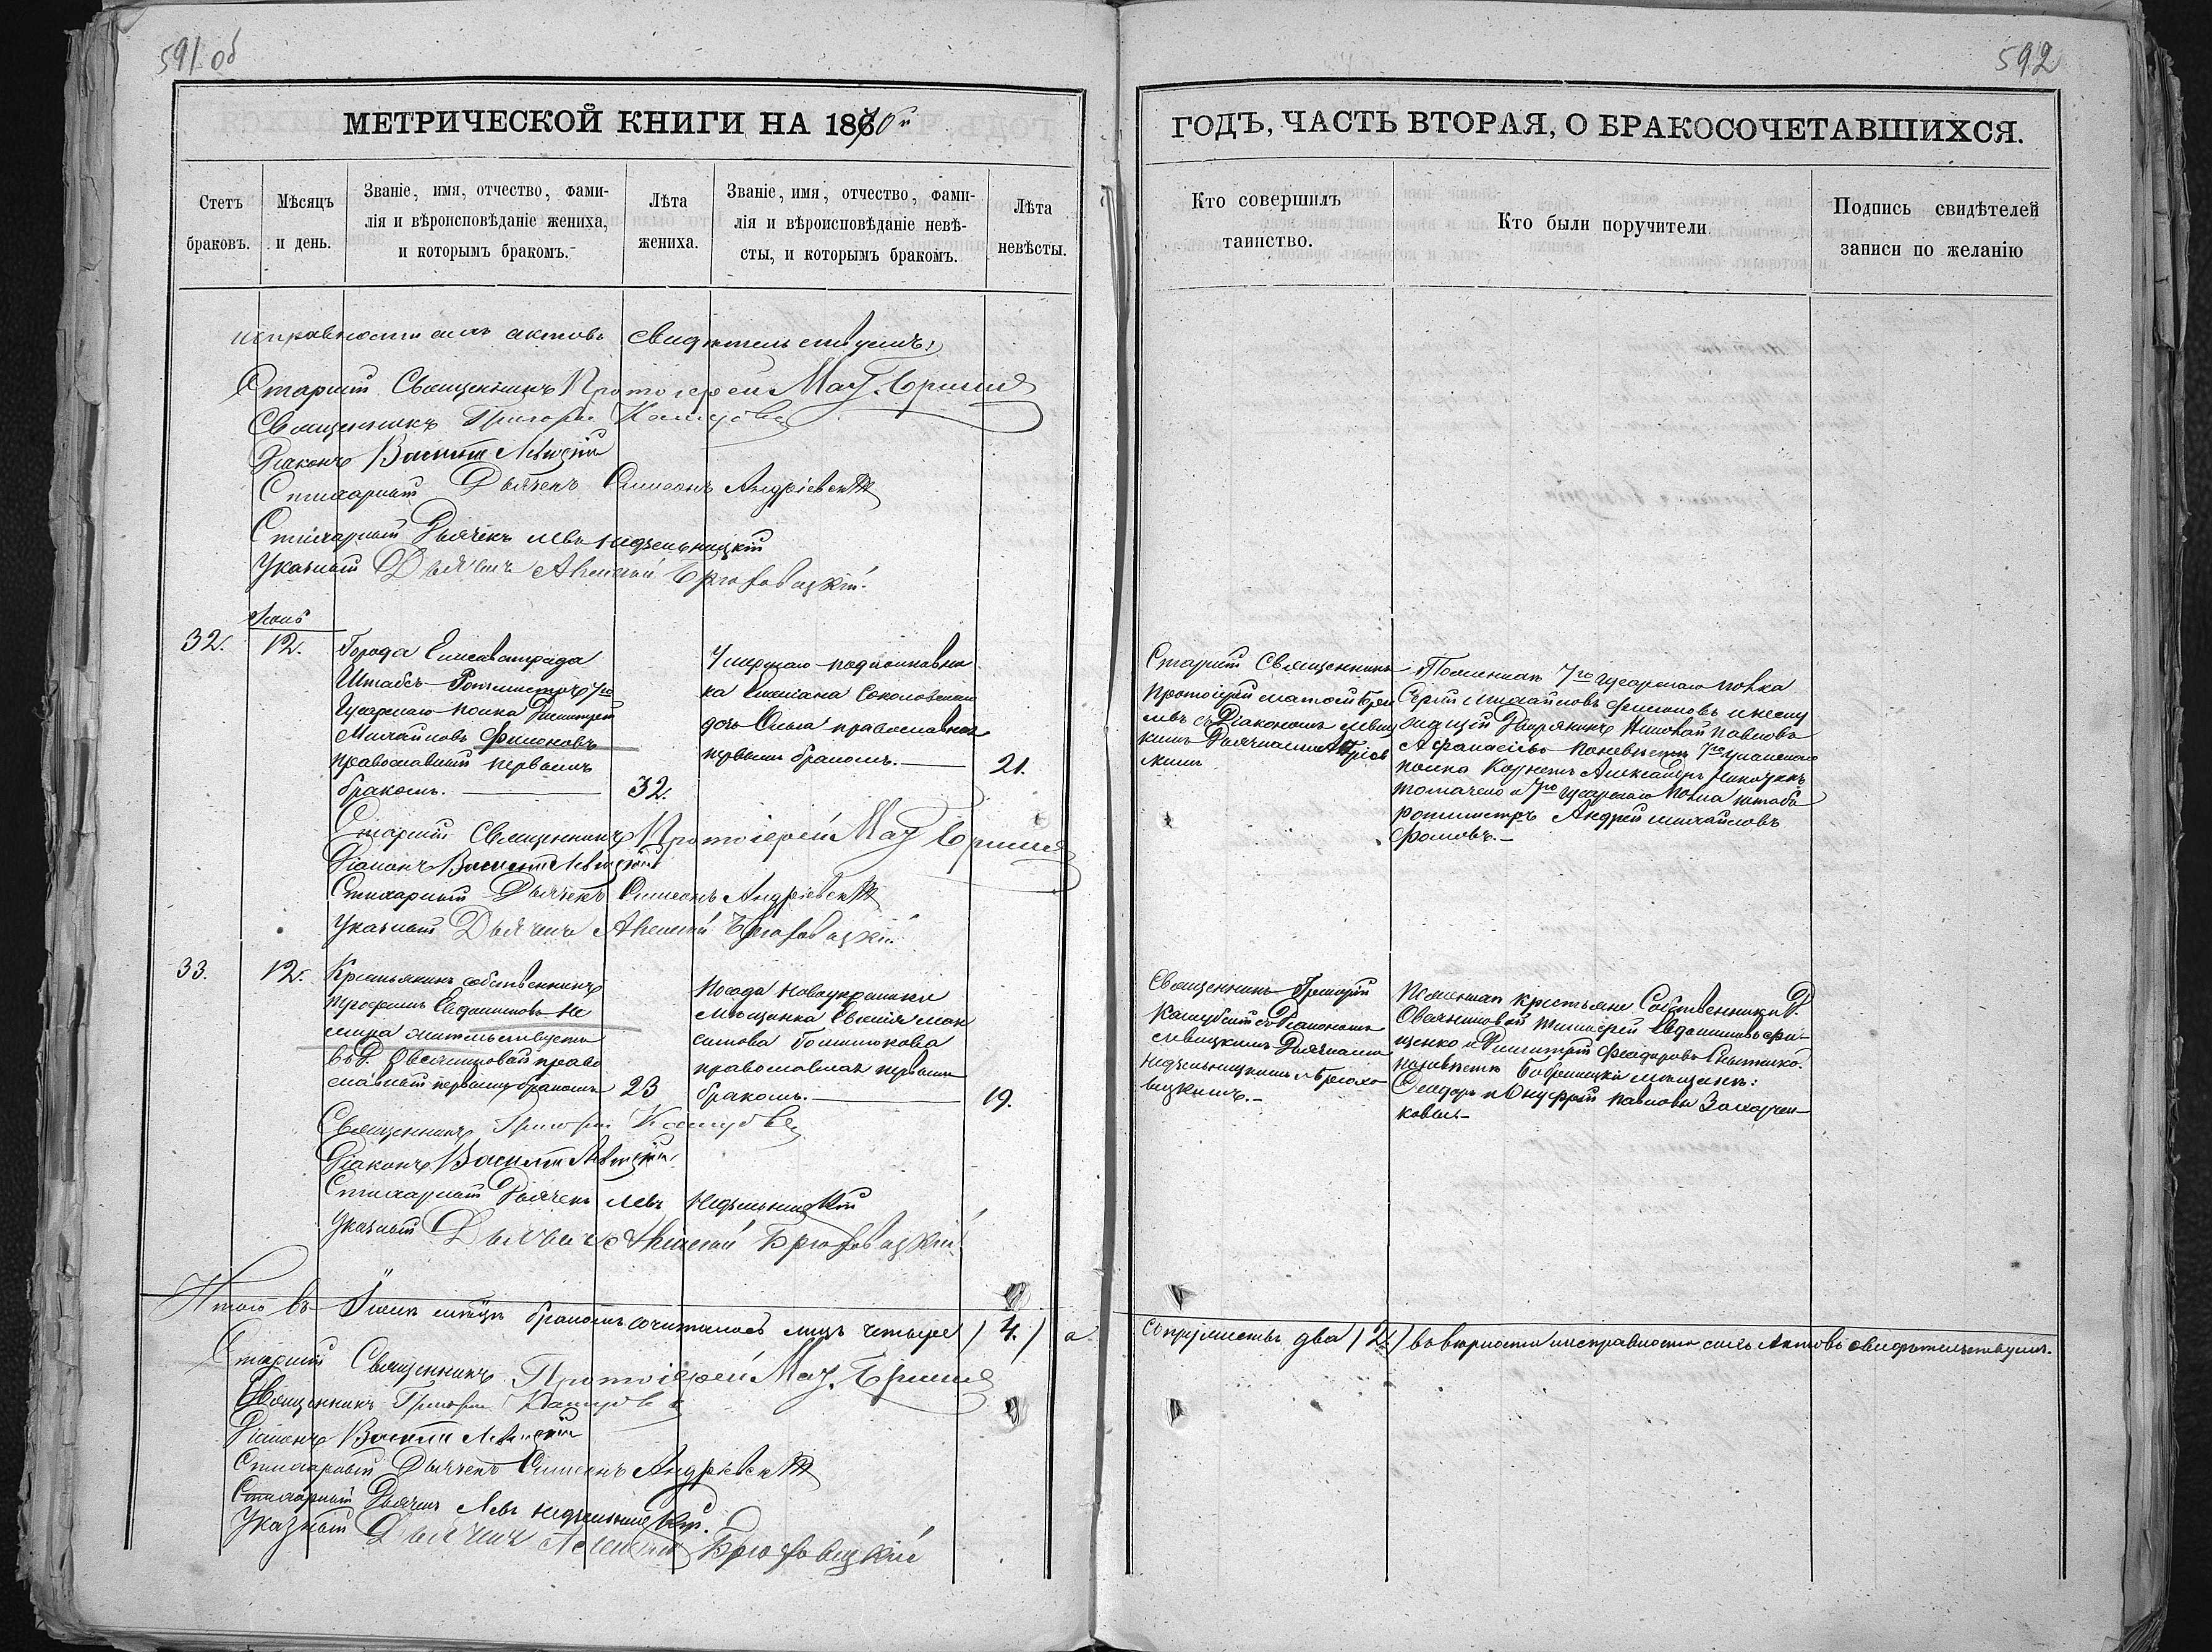 591 об
592
МЕТРИЧЕСКОЙ КНИГИ НА 1870й
ГОДЪ, ЧАСТЬ ВТОРАЯ, О БРАКОСОЧЕТАВШИХСЯ.
Счетъ
браковъ.
Мѣсяцъ
и день.
Званіе, имя, отчество, фами-
лія и вѣроисповѣданіе жениха,
и которымъ бракомъ.
Лѣта
жениха.
Званіе, имя, отчество, фами-
лія и вѣроисповѣданіе невѣ-
сты, и которымъ бракомъ.
Лѣта
невѣсты.
Кто совершилъ
таинство.
Кто были поручители
Подпись свидѣтелей
записи по желанію
исправности сихъ актовъ свидѣтельствуемъ:
Старшій Священникъ Протоіерей
Священникъ Григорій
Діаконъ Василій Левицкій
Стихарный Дьячекъ Симеонъ Андріевскій
Стихарный Дьячекъ Левъ Недзельницкій
Указный Дьячекъ Алексѣй Брюховицкій
32.
12.
Города Елисаветграда
Штабсъ-Ротмистръ 7го
Гусарскаго полка Димитрій
Михайловъ Филоновъ
православный первымъ
бракомъ.
32.
Умершаго подполковни
ка Соколовскаго
дочь Ольга православная
первымъ бракомъ.
21.
Старшій Священникъ
Протоіерей
съ Діакономъ Левиц
кимъ
По женихѣ 7го гусарскаго полка
Михайловъ Филоновъ и
Дворянинъ Николай Павловъ
по невѣстѣ 7го уланскаго
полка Корнетъ Александръ
и 7го гусарскаго полка штабъ
ротмистръ Андрей Михайловъ
Старшій Священникъ Протоіерей
Діаконъ Василій Левицкій
Стихарный Дьячекъ Симеонъ Андріевскій
Указный Дьячекъ Алексѣй Брюховицкій
33.
12.
Крестьянинъ собственникъ
Евдокимовъ Не
мира жительствуетъ
въ Д. Овсяниковой право
славный первымъ бракомъ
23
Посада Новоукраинки
Мѣщанка Евгенія Мак
симова
православная первымъ
бракомъ.
19.
Священникъ Григорій
съ Діакономъ
Левицкимъ Дьячками
Недзельницкимъ и Брюхо
вицкимъ.
По женихѣ крестьяне Собственники Д.
Овсяниковой Тимофей Евдокимовъ
и Димитрій Феодоровъ
по невѣстѣ Бобринецкіе мѣщане:
Феодоръ и Онуфрій Павловы Захарчен-
ковы.
Священникъ Григорій
Діаконъ Василій Левицкій
Стихарный Дьячекъ Левъ Недзельницкій
Указный Дьячекъ Алексѣй Брюховицкій
Итого въ Іюнѣ мѣсяцѣ бракомъ сочеталось лицъ четыре /4./ а
супружествъ два /2./ въ вѣрности и исправности сихъ Актовъ свидѣтельствуемъ.
Старшій Священникъ Протоіерей
Священникъ Григорій
Діаконъ Василій Левицкій
Стихарный Дьячекъ Симеонъ Андріевскій
Стихарный Дьячекъ Левъ Недзельницкій.
Указный Дьячекъ Алексѣй Брюховицкій